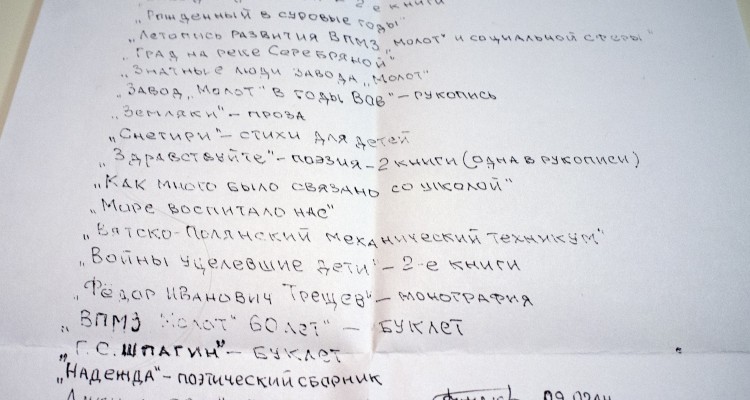 2-е книги
„Рожденный в суровые годы"
„Летопись развития ВПМЗ „Молот" и социальной сферы"
„Град на реке Серебряной"
„Знатные люди завода „Молот"
„Завод „Молот" в годы ВОВ" – рукопись
„Земляки" – проза
„Снегири" – стихи для детей
„Здравствуйте" – поэзия – 2 книги (одна в рукописи)
„Как много было связано со школой"
„Море воспитало нас"
„Вятско-Полянский механический техникум"
„Войны уцелевшие дети" – 2-е книги
„Фёдор Иванович Трещев" – монография
„ВПМЗ Молот" 60 лет" – буклет
„Г.С. Шпагин" – буклет
„Надежда" – поэтический сборник